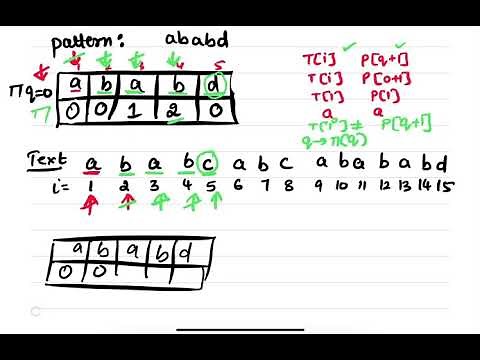 pattern: ababd
1 2 3 4 5
T[i] P[q+1]
q=0 a b a b d
T[i] P[0+1]
π 0 0 1 2 0
T[i] P[1]
a a
T[i] ≠ P[q+1]
q→π(q)
Text a b a b c a b c a b a b a b d
i= 1 2 3 4 5 6 7 8 9 10 11 12 13 14 15
a b a b d
0 0